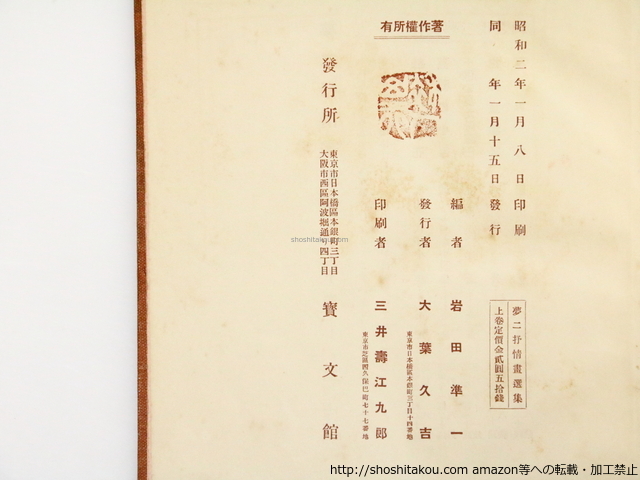 昭和二年一月八日印刷
同年一月十五日發行
夢二抒情畫選集
上卷定價金貳圓五拾錢
著作權所有
編者 岩田準一
發行者 大葉久吉
東京市日本橋區本銀町三丁目十四番地
印刷者 三井壽江九郎
東京市芝區西久保巴町七十七番地
發行所 寶文館
東京市日本橋區本銀町三丁目
大阪市西區阿波堀通り四丁目
shoshitakou.com
http://shoshitakou.com amazon等への転載・加工禁止